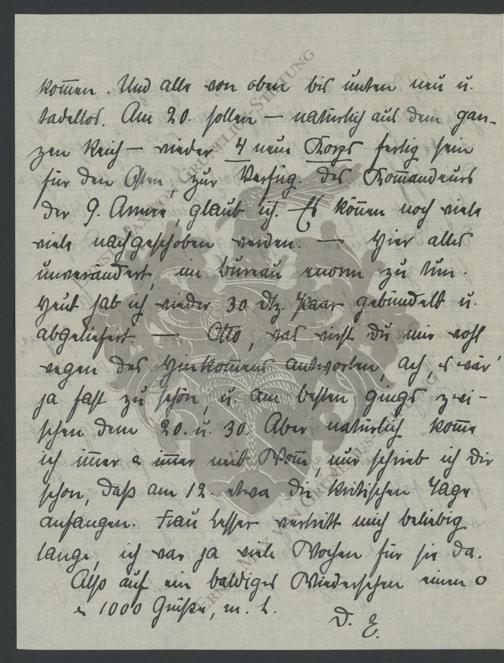 kom̅en. Und alle von oben bis unten neu u.
tadellos. Am 20. sollen – natürlich aus dem gan-
zen Reich – wieder 4 neue Korps fertig sein
für den Osten, zur Verfüg. des Kom̅andeurs
der 9. Armee, glaub ich. Es kön̅en noch viele
viele nachgeschoben werden. — Hier alles
unverändert, im Bureau enorm zu tun.
Heut hab ich wieder 30 Dtz. Paar gebündelt u.
abgeliefert. — Otto, was wirst Du mir wohl
wegen des Hinkom̅ens antworten, ach, es wär'
ja fast zu schön, u. am besten gings zwi-
schen dem 20. u. 30. Aber natürlich kom̅e
ich im̅er u im̅er mit Won̅e, nur schrieb ich Dir
schon, daß am 12. etwa die kritischen Tage
anfangen. Frau Lesser vertritt mich beliebig
lange, ich war ja viele Wochen für sie da.
Also auf ein baldiges Wiedersehen einen o
u 1000 Grüße, m. L.
D. E.